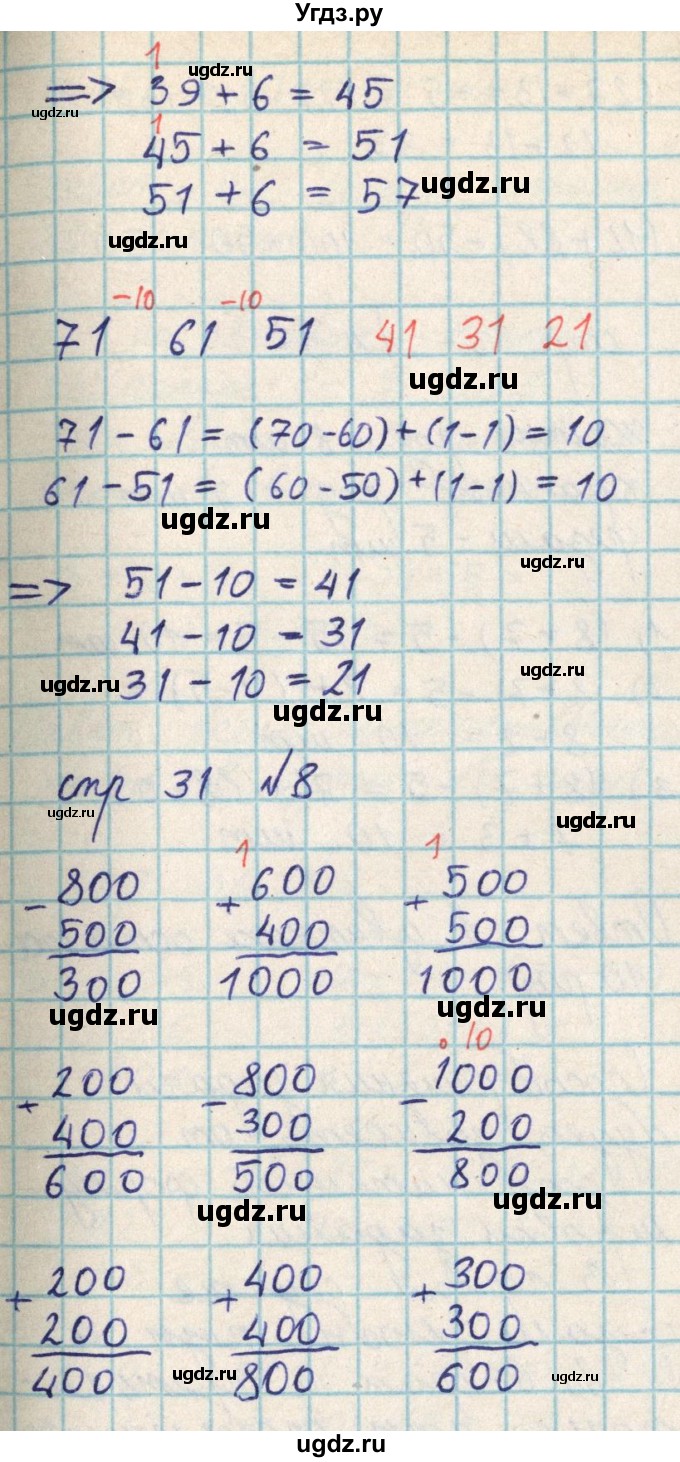 Угдз.ру
1
ugdz.ru
=> 39 + 6 = 45
ugdz.ru
1
45 + 6 = 51
ugdz.ru
51 + 6 = 57
ugdz.ru
-10 -10
71 61 51 41 31 21
ugdz.ru
71 - 61 = (70 - 60) + (1 - 1) = 10
61 - 51 = (60 - 50) + (1 - 1) = 10
ugdz.ru
ugdz.ru
=> 51 - 10 = 41
41 - 10 - 31
ugdz.ru
31 - 10 = 21
ugdz.ru
ugdz.ru
стр 31 №8
ugdz.ru
ugdz.ru
1 1
- 800 + 600 + 500
500 400 500
300 1000 1000
ugdz.ru ugdz.ru
. 10
+ 200 - 800 - 1000
400 300 200
600 500 800
ugdz.ru ugdz.ru
+ 200 + 400 + 300
200 400 300
400 800 600
ugdz.ru ugdz.ru
ugdz.ru